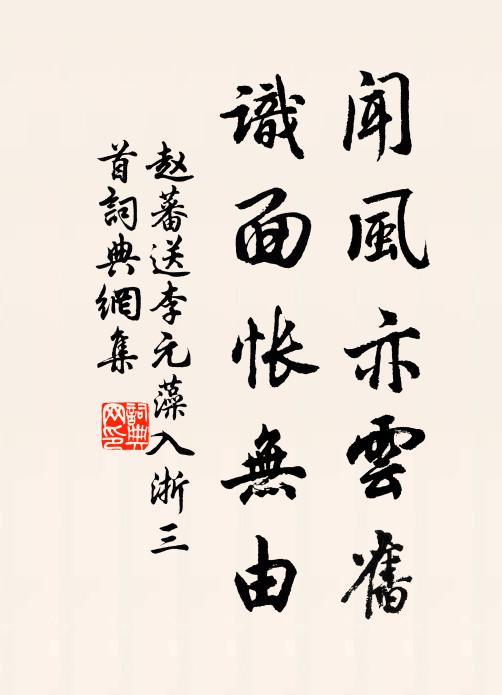 聞風亦雲舊
識面悵無由
赵蕃送李元藻入浙三
首詞典網集
詞典网印